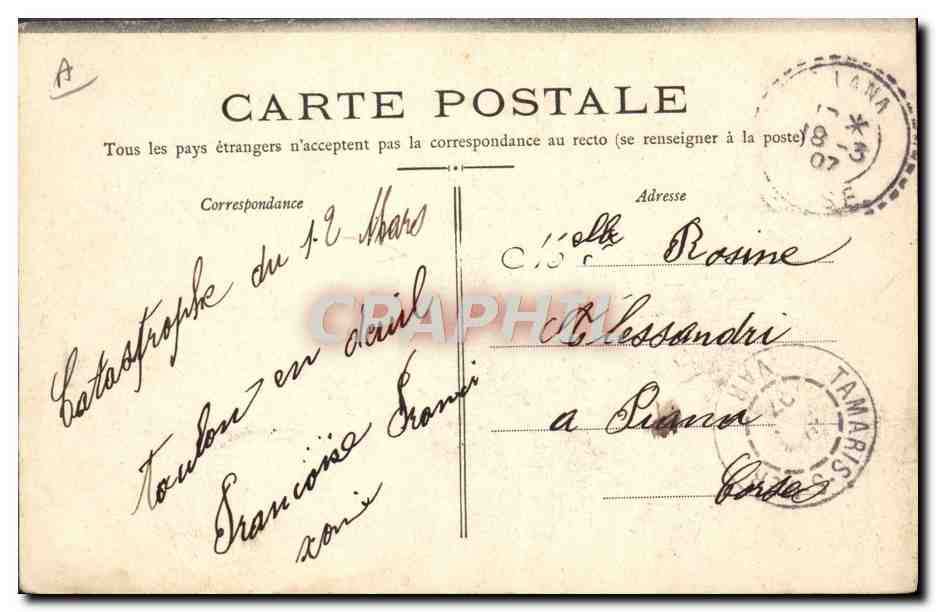 A
CARTE POSTALE
Tous les pays étrangers n'acceptent pas la correspondance au recto (se renseigner à la poste)
Correspondance
Catastrophe du 12 Mars
toulon en deuil
Françoise Franci
xoni
Adresse
Melle Rosine
Alessandri
a Piana
Corse
IANA
18 -3
07
TAMARIS
VAR
CPAPHIL